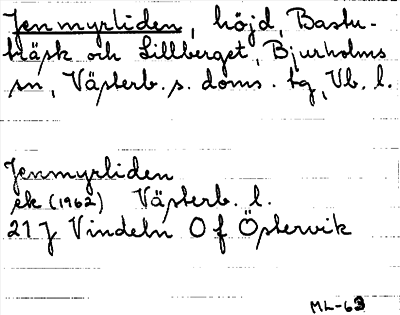 Jenmyrliden, höjd, Bastu-
träsk och Lillberget, Bjurholms
sn, Västerb. s. doms. tg, Vb. l.
Jenmyrliden
ek (1962) Västerb. l.
21J Vindeln 0f Östervik
ML-63